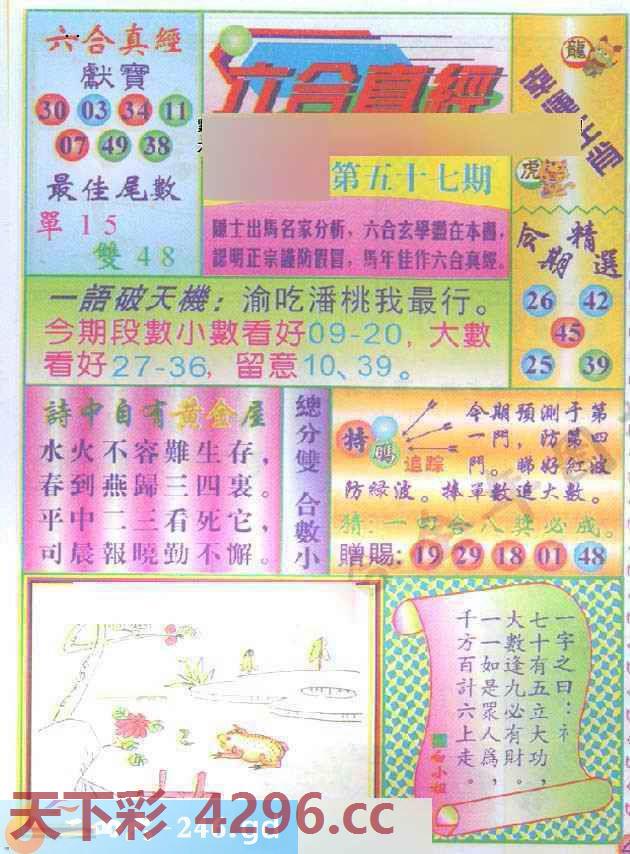 六合真經
獻寶
30 03 34 11
07 49 38
最佳尾數
單 1 5
雙 4 8
六合真經
第五十七期
隱士出馬名家分析，六合玄學盡在本圖，
認明正宗謹防假冒，馬年佳作六合真經。
龍
虎
今期精選
26 42
45
25 39
一語破天機：渝吃潘桃我最行。
今期段數小數看好09-20，大數
看好27-36，留意10、39。
詩中自有黃金屋
水火不容難生存，
春到燕歸三四裏。
平中二三看死它，
司晨報曉勤不懈。
總分雙 合數小
特碼
追踪
今期預測于第
一門，防第四
門。睇好紅波
防緑波。捧單數追大數。
猜：一四合八獎必成。
贈賜：19 29 18 01 48
一字之曰：礻
七十有五立大功，
大數逢九必有財。
一一如是眾人爲，
千方百計六上走。
白小姐
天下彩 4296.cc
246.gd